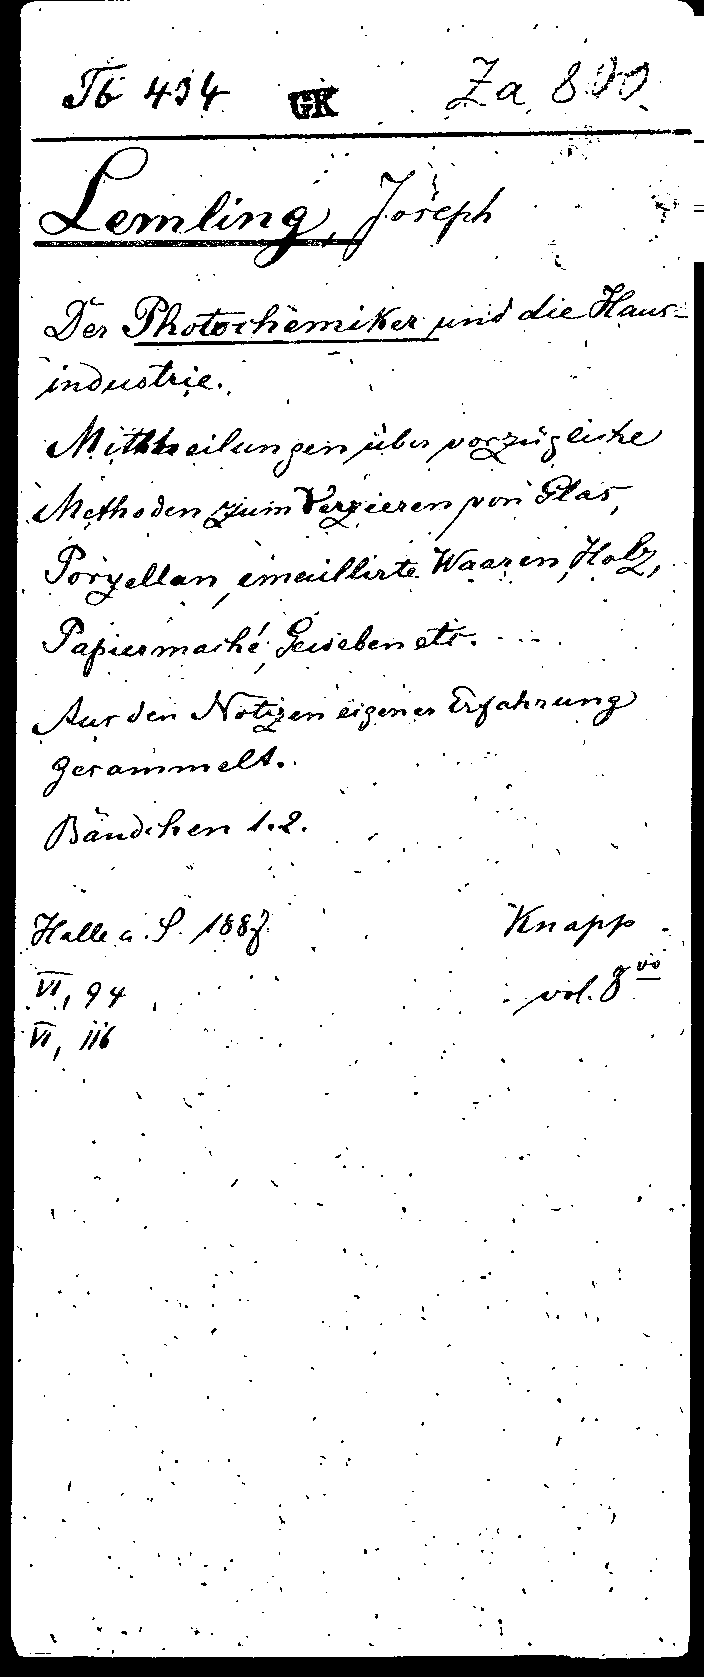 Tb 434 GK Za 800
Lemling, Joseph
Der Photochemiker und die Haus-
industrie.
Mittheilungen über vorzügliche
Methoden zum Verzieren von Glas,
Porzellan, emaillirte Waaren, Holz,
Papiermaché, Geweben etc.
Aus den Notizen eigener Erfahrung
gesammelt.
Bändchen 1.2.
Halle a. S. Knapp
VI, 94 vol. 8vo
VI, 116